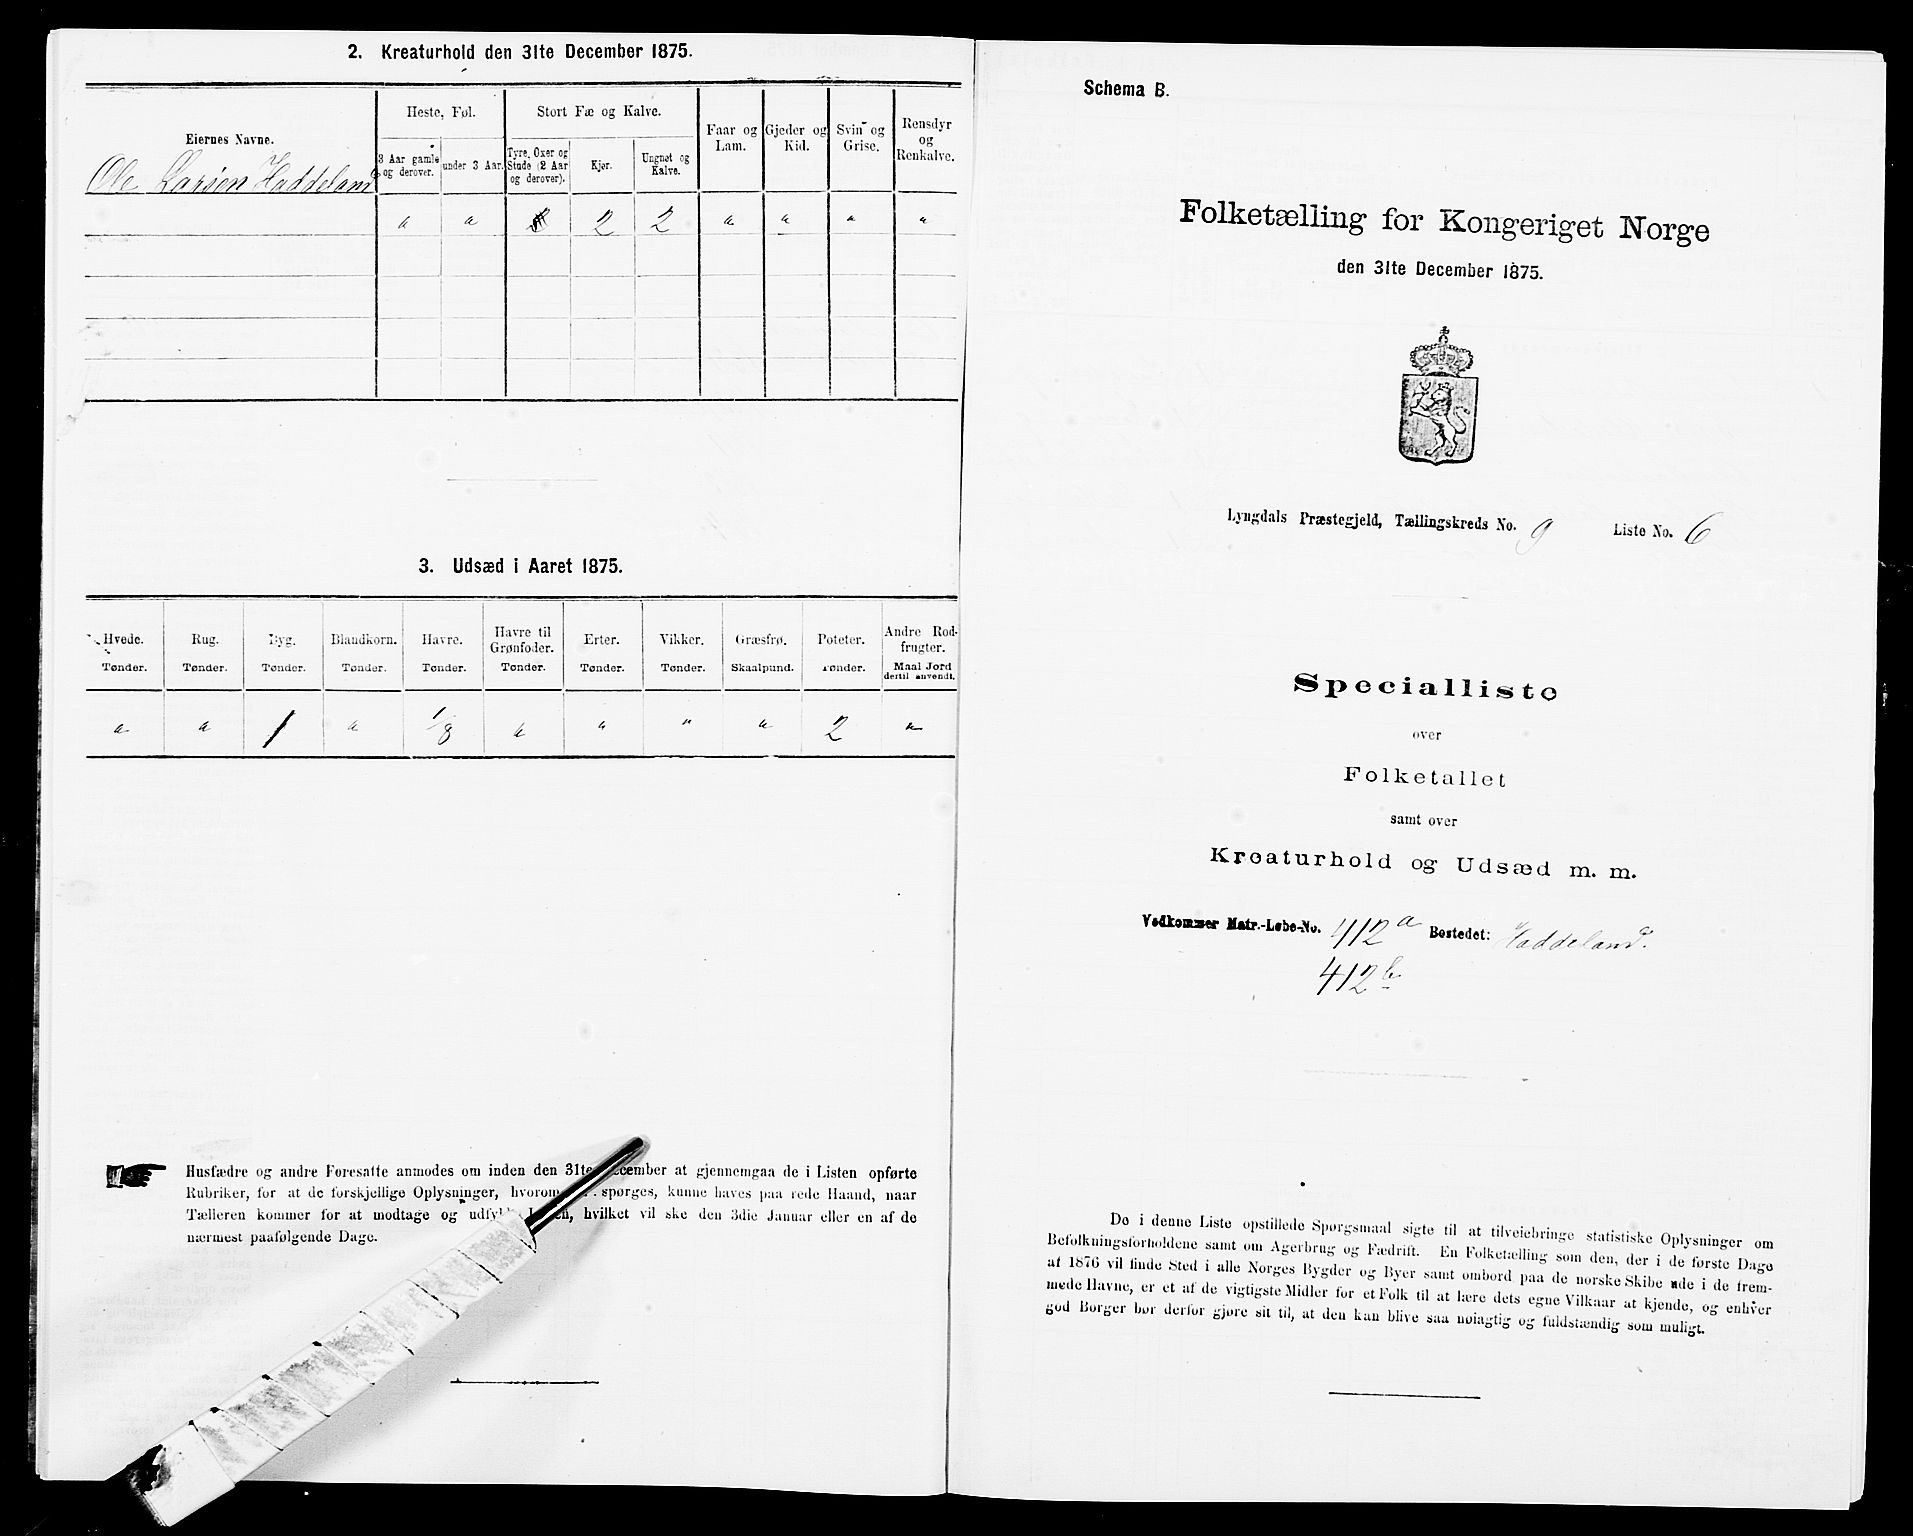 2. Kreaturhold den 31te December 1875.
Eiernes Navne.
Heste, Føl.
Stort Fæ og Kalve.
Faar og Lam.
Gjeder og Kid.
Svin og Grise.
Rensdyr og Renkalve.
3 Aar gamle og derover.
under 3 Aar.
Tyre, Oxer og Stude (2 Aar og derover).
Kjør.
Ungnøt og Kalve.
Ole Larsen Haddeland
" " 2 2 " " " "
3. Udsæd i Aaret 1875.
Hvede. Rug. Byg. Blandkorn. Havre. Havre til Grønfoder. Erter. Vikker. Græsfrø. Poteter. Andre Rodfrugter.
Tønder. Tønder. Tønder. Tønder. Tønder. Tønder. Tønder. Tønder. Skaalpund. Tønder. Maal Jord dertil anvendt.
" " 1 " 1/8 " " " " 2 "
Husfædre og andre Foresatte anmodes om inden den 31te December at gjennemgaa de i Listen opførte
Rubriker, for at de forskjellige Oplysninger, hvorom spørges, kunne haves paa rede Haand, naar
Tælleren kommer for at modtage og udfylde Listen, hvilket vil ske den 3die Januar eller en af de
nærmest paafølgende Dage.
Schema B.
Folketælling for Kongeriget Norge
den 31te December 1875.
Lyngdals Præstegjeld, Tællingskreds No. 9 Liste No. 6
Specialliste
over
Folketallet
samt over
Kreaturhold og Udsæd m. m.
Vedkommer Matr.-Løbe-No. 412a Bostedet: Haddeland.
412b
De i denne Liste opstillede Spørgsmaal sigte til at tilveiebringe statistiske Oplysninger om
Befolkningsforholdene samt om Agerbrug og Fædrift. En Folketælling som den, der i de første Dage
af 1876 vil finde Sted i alle Norges Bygder og Byer samt ombord paa de norske Skibe ude i de frem-
mede Havne, er et af de vigtigste Midler for et Folk til at lære dets egne Vilkaar at kjende, og enhver
god Borger bør derfor gjøre sit til, at den kan blive saa nøiagtig og fuldstændig som muligt.